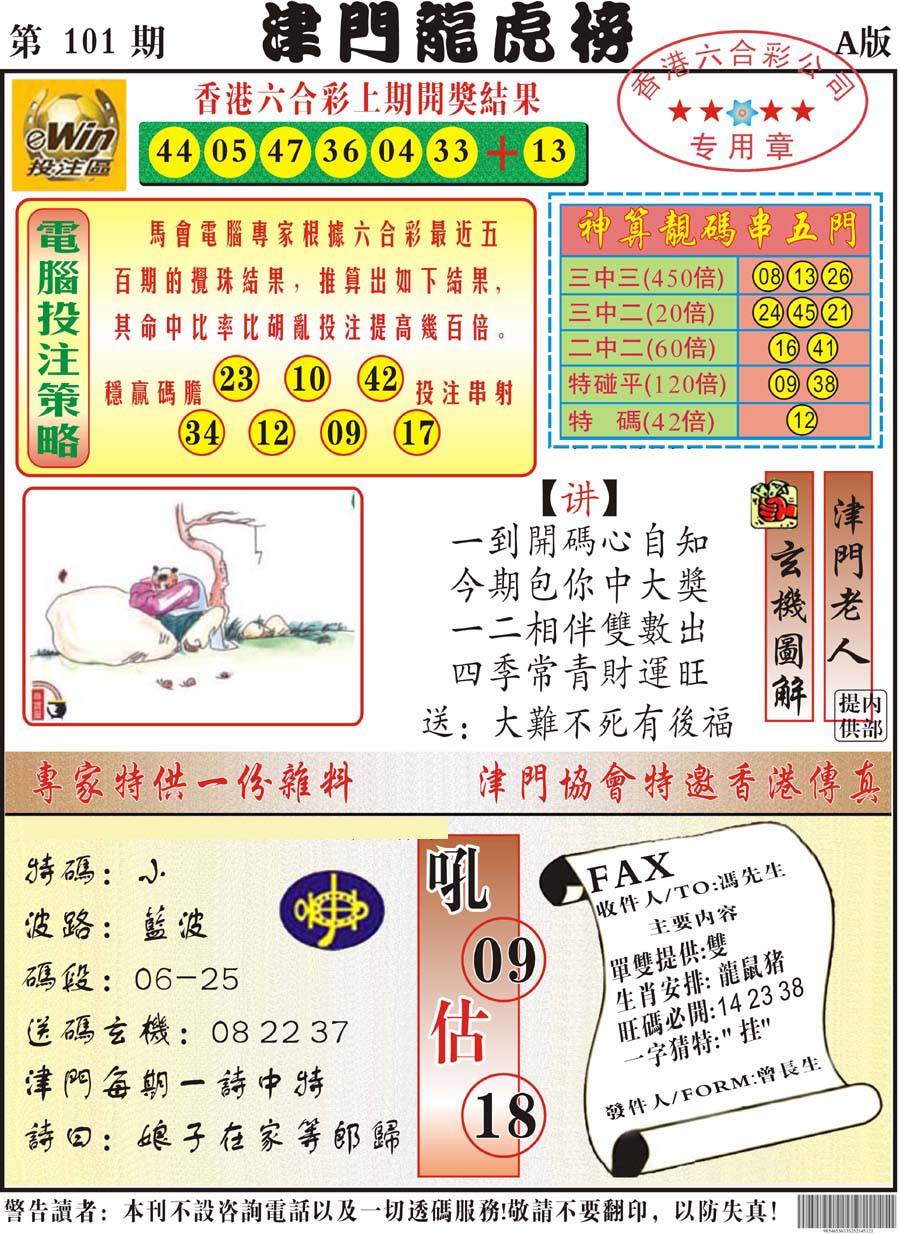 第 101 期
津門龍虎榜
A版
香港六合彩公司
专用章
eWin
投注區
香港六合彩上期開獎結果
44 05 47 36 04 33 + 13
電腦投注策略
馬會電腦專家根據六合彩最近五
百期的攪珠結果，推算出如下結果，
其命中比率比胡亂投注提高幾百倍。
穩贏碼膽 23 10 42 投注串射
34 12 09 17
神算靚碼串五門
三中三(450倍) 08 13 26
三中二(20倍) 24 45 21
二中二(60倍) 16 41
特碰平(120倍) 09 38
特 碼(42倍) 12
【讲】
一到開碼心自知
今期包你中大獎
一二相伴雙數出
四季常青財運旺
送：大難不死有後福
玄機圖解
津門老人
內部提供
專家特供一份雜料
津門協會特邀香港傳真
特碼：小
波路：藍波
碼段：06-25
送碼玄機：08 22 37
津門每期一詩中特
詩曰：娘子在家等郎歸
吼
09
估
18
FAX
收件人/TO:馮先生
主要内容
單雙提供:雙
生肖安排: 龍鼠猪
旺碼必開:14 23 38
一字猜特:" 挂"
發件人/FORM:曾長生
警告讀者：本刊不設咨詢電話以及一切透碼服務!敬請不要翻印，以防失真！